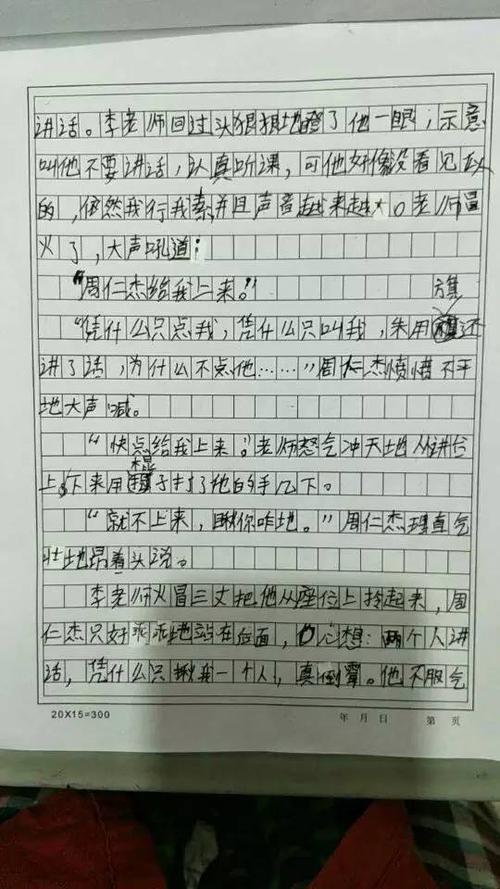 讲话。李老师回过头狠狠地瞪了他一眼,示意
叫他不要讲话,认真听课,可他好像没看见似
的,依然我行我素,并且声音越来越大。老师冒
火了,大声吼道:
“周仁杰给我上来。”
旗
“凭什么只点我,凭什么只叫我,朱用还
讲了话,为什么不点他……”周仁杰愤愤不平
地大声喊。
“快点给我上来。”老师怒气冲天地从讲台
棍
上下来用子打了他的手几下。
“就不上来,瞅你咋地。”周仁杰理直气
壮地昂着头说。
李老师火冒三丈把他从座位上拎起来,周
仁杰只好乖乖地站在后面,心想:两个人讲
话,凭什么只揪我一个人,真倒霉。他不服气
20X15=300 年 月 日 第 页